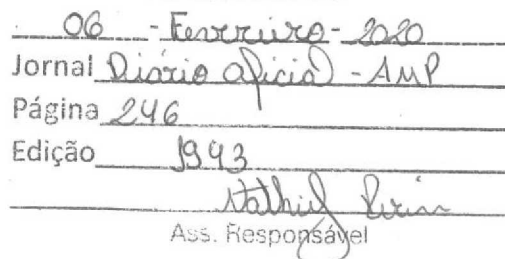 06 - Fevereiro - 2020
Jornal Diário Oficial - AMP
Página 246
Edição 1943
Ass. Responsável